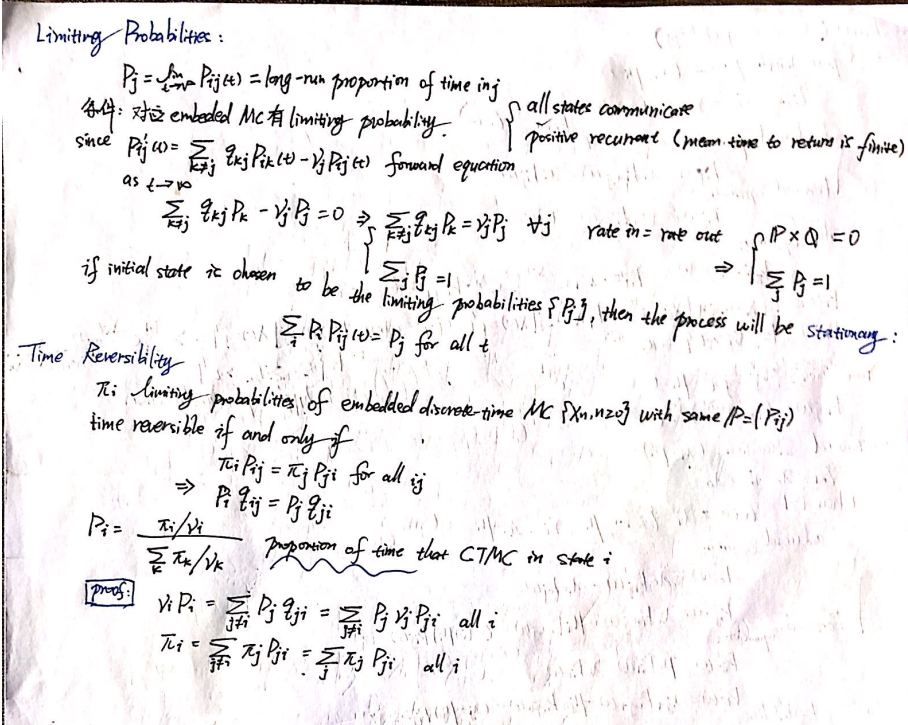 Limiting Probabilities:
P_j = lim_{t→∞} P_ij(t) = long-run proportion of time in j
条件: 对应 embeded MC 有 limiting probability. { all states communicate
positive recurrent (mean time to return is finite)
since P'_ij(t) = Σ_{k≠j} q_kj P_ik(t) - ν_j P_ij(t) forward equation
as t→∞
Σ_{k≠j} q_kj P_k - ν_j P_j = 0 ⇒ { Σ_{k≠j} q_kj P_k = ν_j P_j ∀j rate in = rate out ⇒ { ℙ×Q = 0
Σ_j P_j = 1 Σ_j P_j = 1
if initial state is chosen to be the limiting probabilities {P_j}, then the process will be stationary:
Σ_i P_i P_ij(t) = P_j for all t
Time Reversibility
π_i limiting probabilities of embedded discrete-time MC {Xn, n≥0} with same ℙ=(P_ij)
time reversible if and only if
π_i P_ij = π_j P_ji for all ij
⇒ P_i q_ij = P_j q_ji
P_i = (π_i/ν_i) / (Σ_k π_k/ν_k) proportion of time that CTMC in state i
proof:
ν_i P_i = Σ_{j≠i} P_j q_ji = Σ_{j≠i} P_j ν_j P_ji all i
π_i = Σ_{j≠i} π_j P_ji = Σ_j π_j P_ji all i